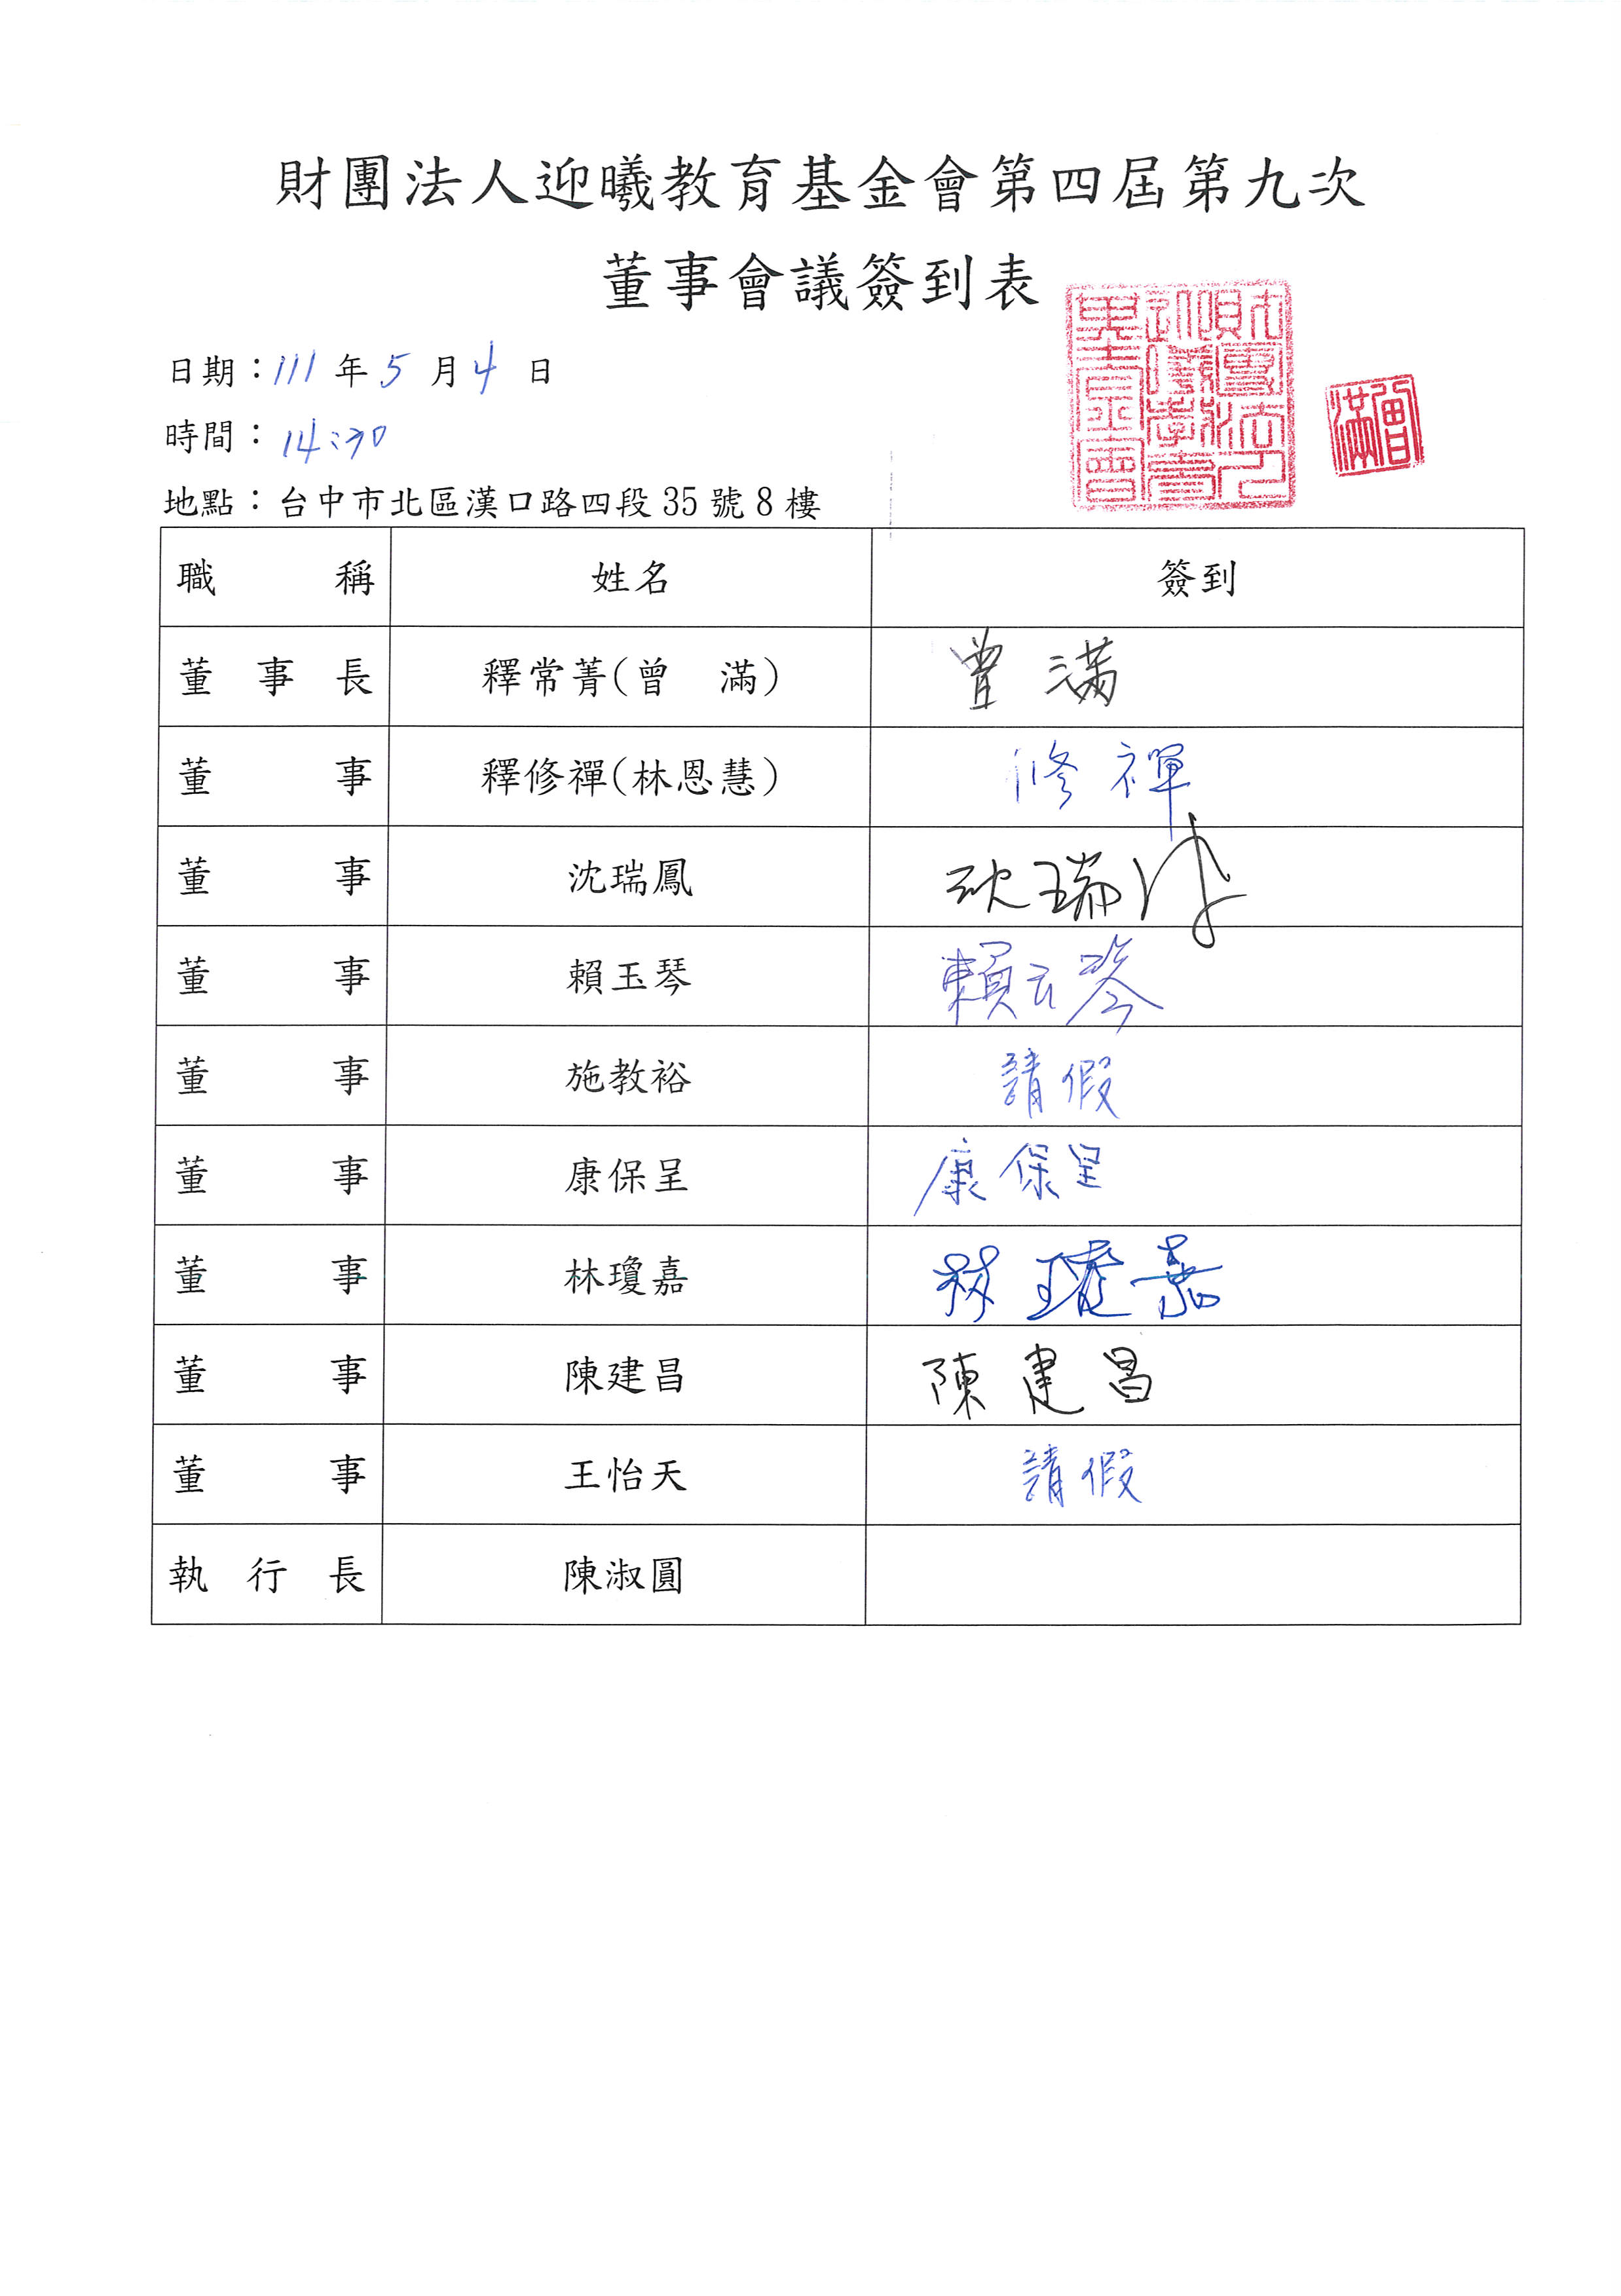 財團法人迎曦教育基金會第四屆第九次
董事會議簽到表
財團法人迎曦教育基金會
曾滿
日期：111年5月4日
時間：14:30
地點：台中市北區漢口路四段35號8樓
職稱 姓名 簽到
董事長 釋常菁(曾 滿) 曾滿
董事 釋修禪(林恩慧) 修禪
董事 沈瑞鳳 沈瑞鳳
董事 賴玉琴 賴玉琴
董事 施教裕 請假
董事 康保呈 康保呈
董事 林瓊嘉 林瓊嘉
董事 陳建昌 陳建昌
董事 王怡天 請假
執行長 陳淑圓